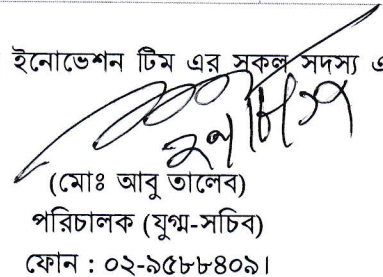 ইনোভেশন টিম এর সকল সদস্য এ
(মোঃ আবু তালেব)
পরিচালক (যুগ্ম-সচিব)
ফোন : ০২-৯৫৮৮৪০৯।